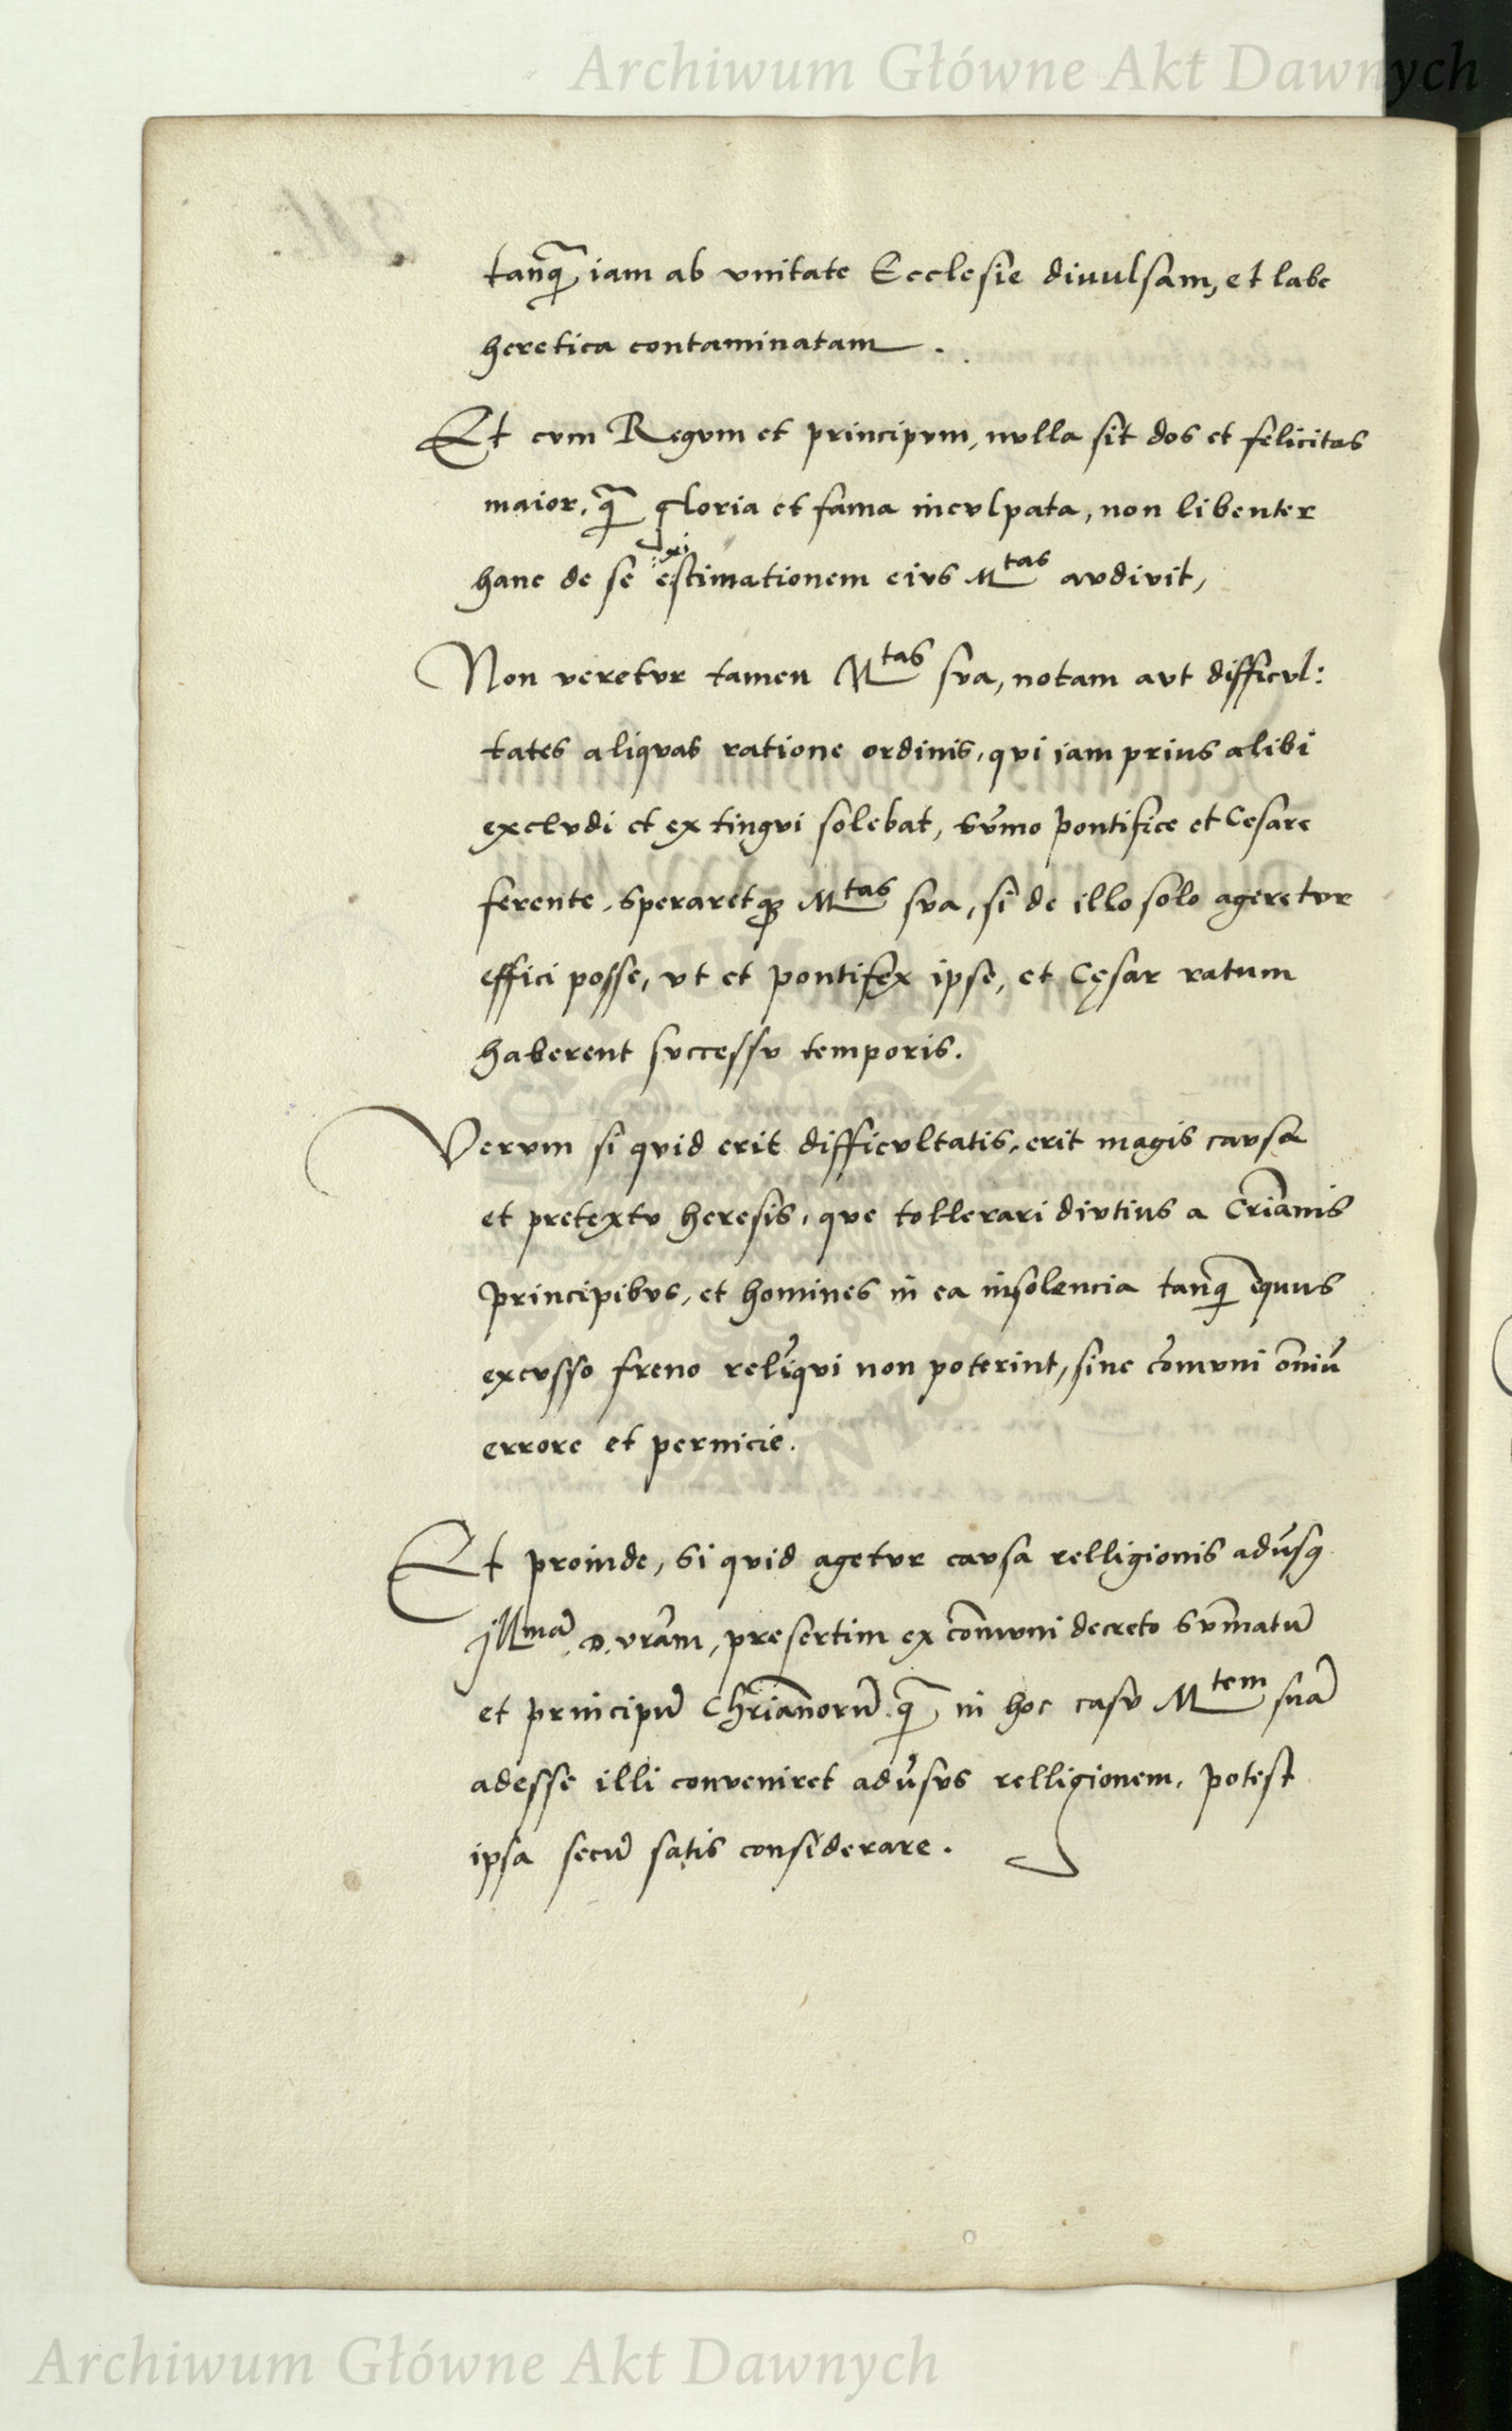 Archiwum Główne Akt Dawnych
tanq̃ iam ab vnitate Ecclesie diuulsam, et labe
heretica contaminatam.
Et cvm Regvm et principvm, nvlla sit dos et felicitas
maior, q̃ gloria et fama incvlpata, non libenter
xi
hanc de se estimationem eivs Mtas avdivit,
Non veretvr tamen Mtas sva, notam avt difficvl:
tates aliqvas ratione ordinis, qvi iam prius alibi
exclvdi et extingvi solebat, sṽmo pontifice et Cesare
ferente, speraretq₃ Mtas sva, si de illo solo ageretvr
effici posse, vt et pontifex ipse, et Cęsar ratum
haberent svccessv temporis.
Vervm si qvid erit difficvltatis, erit magis cavsa
et pretextv heresis, qve tollerari divtius a Cr̃ianis
principibvs, et homines in ea insolencia tanq̃ equus
excvsso freno relĩqvi non poterint, sine cõmvni õniũ
errore et pernicie.
Et proinde, si qvid agetvr cavsa relligionis adṽsq
Jllmã D. vrãm, presertim ex cõmvni decreto svm̃atũ
et principũ Chr̃ianorũ q̃ in hoc casv Mtem suã
adesse illi conveniret adṽsvs relligionem, potest
ipsa secũ satis considerare.
Archiwum Główne Akt Dawnych